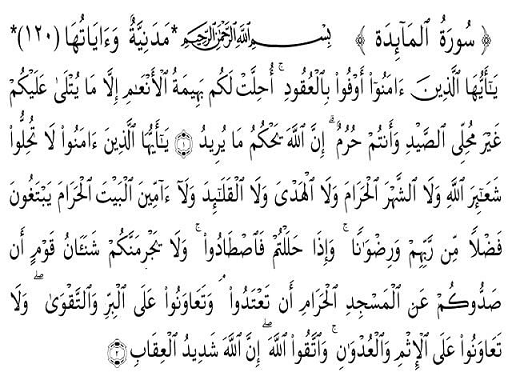 ﴿ سُورَةُ المَآئِدَة ﴾ بِسْمِ اللَّهِ الرَّحْمَٰنِ الرَّحِيمِ *مَدَنِيَّةٌ وَءَايَاتُهَا (١٢٠)*
يَـٰٓأَيُّهَا ٱلَّذِينَ ءَامَنُوٓا۟ أَوْفُوا۟ بِٱلْعُقُودِ ۚ أُحِلَّتْ لَكُم بَهِيمَةُ ٱلْأَنْعَـٰمِ إِلَّا مَا يُتْلَىٰ عَلَيْكُمْ
غَيْرَ مُحِلِّى ٱلصَّيْدِ وَأَنتُمْ حُرُمٌ ۗ إِنَّ ٱللَّهَ يَحْكُمُ مَا يُرِيدُ ﴿١﴾ يَـٰٓأَيُّهَا ٱلَّذِينَ ءَامَنُوا۟ لَا تُحِلُّوا۟
شَعَـٰٓئِرَ ٱللَّهِ وَلَا ٱلشَّهْرَ ٱلْحَرَامَ وَلَا ٱلْهَدْىَ وَلَا ٱلْقَلَـٰٓئِدَ وَلَآ ءَآمِّينَ ٱلْبَيْتَ ٱلْحَرَامَ يَبْتَغُونَ
فَضْلًا مِّن رَّبِّهِمْ وَرِضْوَٰنًا ۚ وَإِذَا حَلَلْتُمْ فَٱصْطَادُوا۟ ۚ وَلَا يَجْرِمَنَّكُمْ شَنَـَٔانُ قَوْمٍ أَن
صَدُّوكُمْ عَنِ ٱلْمَسْجِدِ ٱلْحَرَامِ أَن تَعْتَدُوا۟ ۘ وَتَعَاوَنُوا۟ عَلَى ٱلْبِرِّ وَٱلتَّقْوَىٰ ۖ وَلَا
تَعَاوَنُوا۟ عَلَى ٱلْإِثْمِ وَٱلْعُدْوَٰنِ ۚ وَٱتَّقُوا۟ ٱللَّهَ ۖ إِنَّ ٱللَّهَ شَدِيدُ ٱلْعِقَابِ ﴿٢﴾